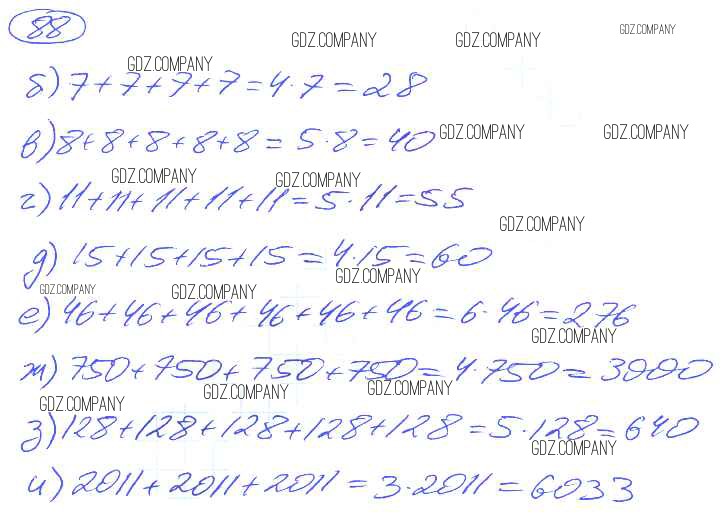 88
GDZ.COMPANY GDZ.COMPANY GDZ.COMPANY
GDZ.COMPANY
б) 7+7+7+7=4·7=28
в) 8+8+8+8+8=5·8=40 GDZ.COMPANY GDZ.COMPANY
GDZ.COMPANY GDZ.COMPANY
г) 11+11+11+11+11=5·11=55
GDZ.COMPANY
д) 15+15+15+15=4·15=60
GDZ.COMPANY
GDZ.COMPANY GDZ.COMPANY
е) 46+46+46+46+46+46=6·46=276
GDZ.COMPANY
ж) 750+750+750+750=4·750=3000
GDZ.COMPANY GDZ.COMPANY GDZ.COMPANY
з) 128+128+128+128+128=5·128=640
GDZ.COMPANY
и) 2011+2011+2011=3·2011=6033